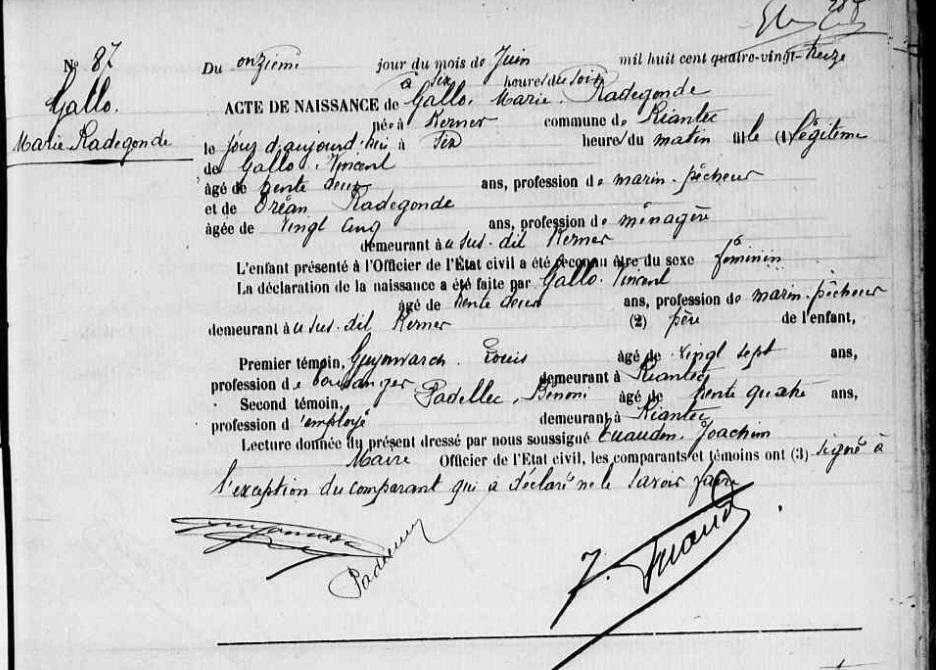 N° 87
Gallo.
Marie Radegonde
Du onzième jour du mois de Juin mil huit cent quatre-vingt-treize
à six heures du soir
ACTE DE NAISSANCE de Gallo. Marie. Radegonde
née à Kerner commune de Riantec
le jour d'aujourd'hui à six heures du matin fille (1) légitime
de Gallo. Vincent
âgé de trente deux ans, profession de marin-pêcheur
et de Dréan Radegonde
âgée de vingt cinq ans, profession de ménagère
demeurant au sus-dit Kerner
L'enfant présenté à l'Officier de l'État civil a été reconnu être du sexe féminin
La déclaration de la naissance a été faite par Gallo. Vincent
âgé de trente deux ans, profession de marin-pêcheur
demeurant au sus-dit Kerner (2) père de l'enfant,
Premier témoin, Guyomarch Louis âgé de vingt sept ans,
profession de boulanger demeurant à Riantec
Second témoin, Padellec, Bénoni âgé de trente quatre ans,
profession d'employé demeurant à Riantec
Lecture donnée du présent dressé par nous soussigné Joachim
Maire Officier de l'Etat civil, les comparants et témoins ont (3) signé à
l'exception du comparant qui à déclaré ne le savoir faire